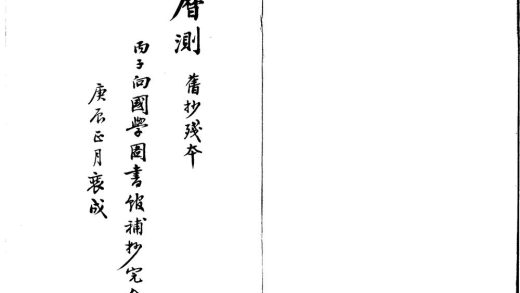 曆測
舊抄殘本
丙子向國學圖書館補抄完
庚辰正月裝成